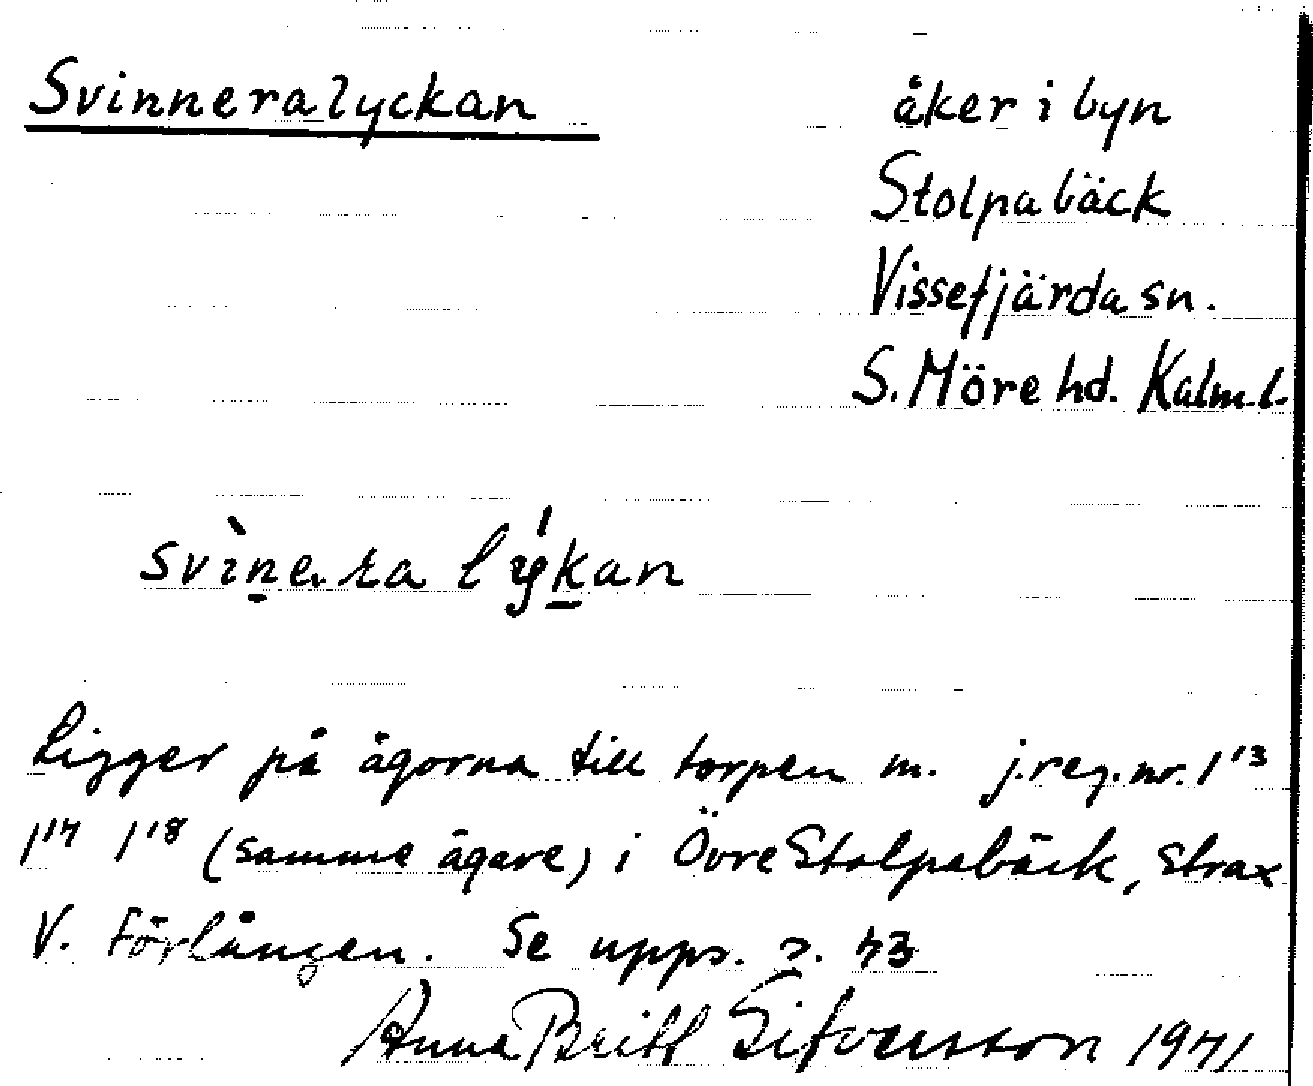 Svinneralyckan
åker i byn
Stolpabäck
Vissefjärda sn.
S. Möre hd. Kalm. l.
svìnera lýkan
Ligger på ägorna till torpen m. j.reg.nr. 1¹³
1¹⁷ 1¹⁸ (samme ägare) i Övre Stolpabäck, strax
V. Förlången. Se upps. s. 73
Anna Britt Sifversson 1971